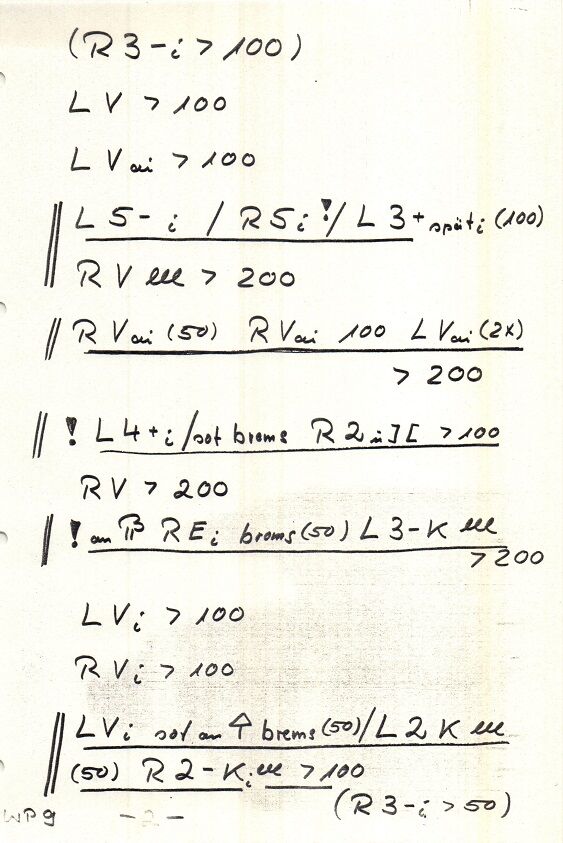 (R 3 - i > 100)
L V > 100
L V ai > 100
L 5 - i / R 5 i ! / L 3 + spät i (100)
R V lll > 200
R V ai (50) R V ai 100 L V ai (2x)
> 200
! L 4 + i / sot brems R 2 ü ][ > 100
R V > 200
! an R E i brems (50) L 3 - K lll
> 200
L V i > 100
R V i > 100
L V i sot an brems (50) / L 2 K lll
(50) R 2 - K i lll > 100
(R 3 - i > 50)
WP9 - 2 -